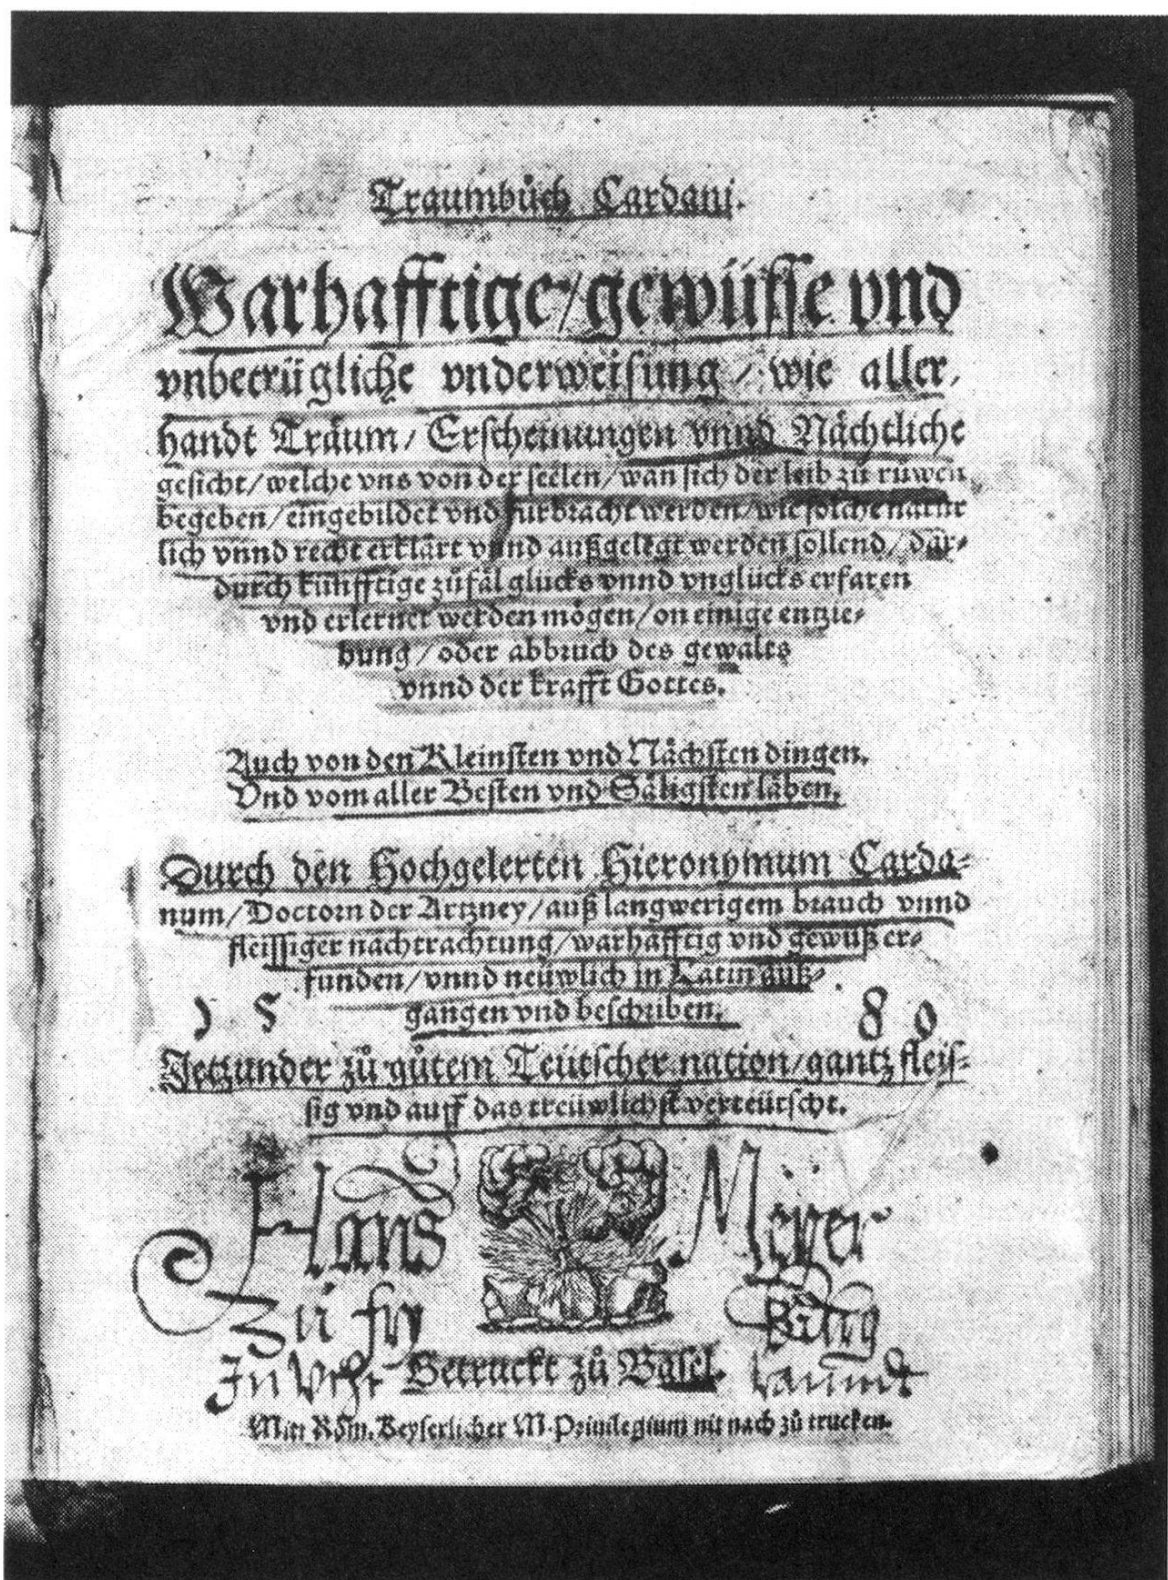 Traumbůch Cardani.
Warhafftige/gewüsse vnd
vnbetrügliche vnderweisung/ wie aller,
handt Träum/ Erscheinungen vnnd Nächtliche
gesicht/welche vns von der seelen/wan sich der leib zů ruwen
begeben/eingebildet vnd fürbracht werden/wie solche natür
lich vnnd recht erklärt vnnd außgelegt werden sollend/ dar⸗
durch künfftige zůfäl glücks vnnd vnglücks erfaren
vnd erlernet werden mögen/on einige entzie⸗
hung/oder abbruch des gewalts
vnnd der krafft Gottes.
Auch von den Kleinsten vnd Nächsten dingen.
Vnd vom aller Besten vnd Säligsten läben.
Durch den Hochgelerten Hieronymum Carda⸗
num/Doctorn der Artzney/auß langwerigem brauch vnnd
fleissiger nachtrachtung/warhafftig vnd gewüß er⸗
funden/vnnd neüwlich in Latin auß⸗
gangen vnd beschriben.
15 80
Jetzunder zů gůtem Teütscher nation/gantz fleis⸗
sig vnd auff das treüwlichst verteütscht.
Hans Meyer
Zů
In
Getruckt zů Basel.
Mitt Röm. Keyserlicher M. Priuilegium nit nach zů trucken.